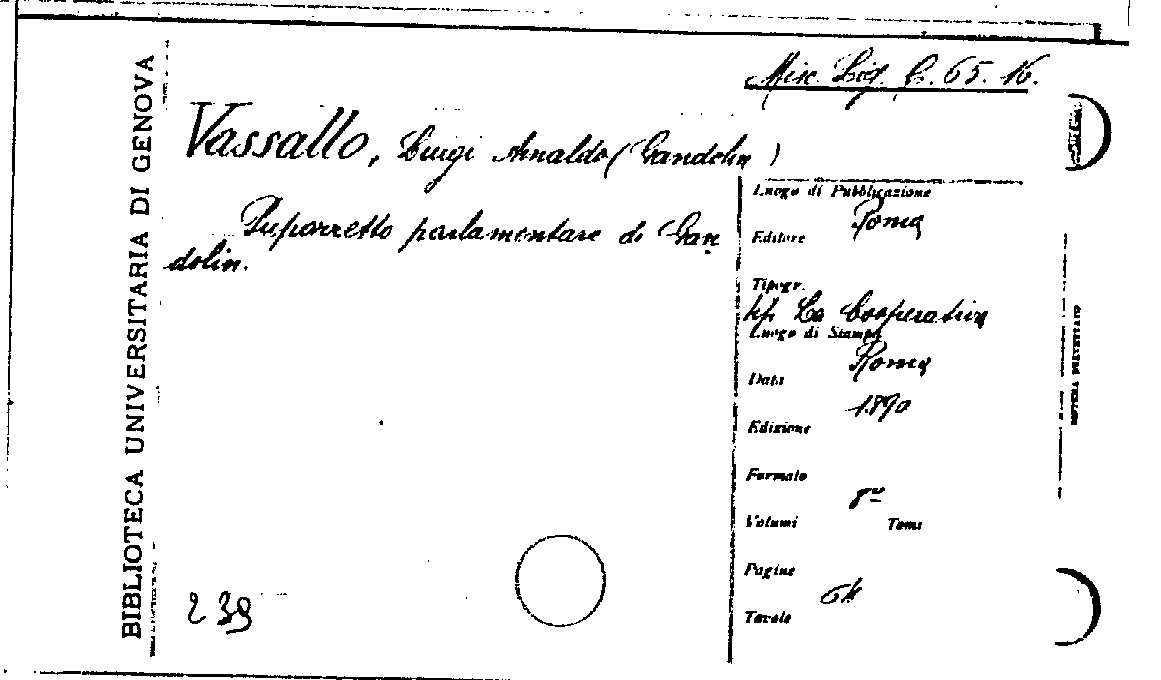 BIBLIOTECA UNIVERSITARIA DI GENOVA
Misc. Lig. C. 65. 16.
Vassallo, Luigi Arnaldo (Gandolin)
Pupazzetto parlamentare di Gan
dolin.
Luogo di Pubblicazione
Roma
Editore
Tipogr.
tip. La Cooperativa
Luogo di Stampa
Roma
Data
1890
Edizione
Formato
8º
Volumi Tomi
Pagine
64
Tavole
239